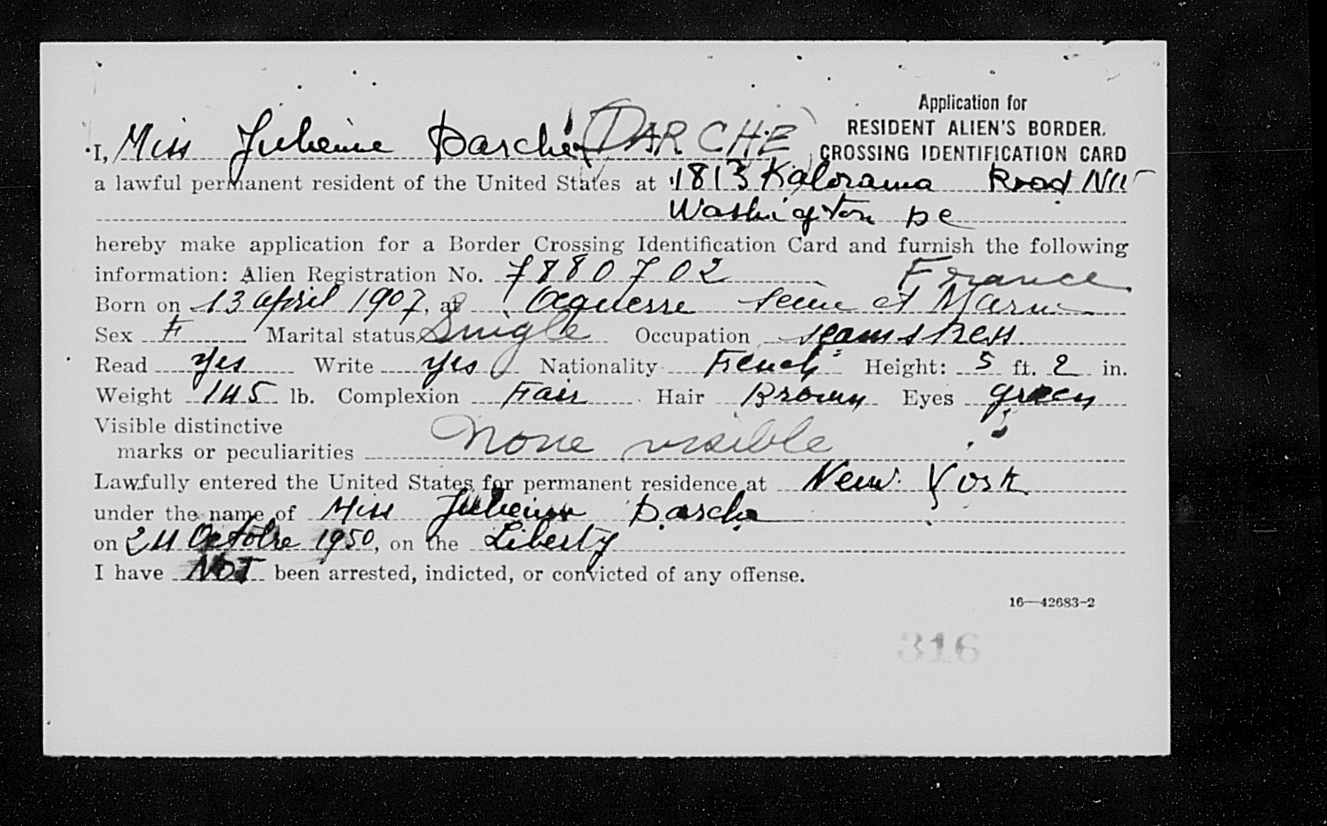 Application for
RESIDENT ALIEN'S BORDER
CROSSING IDENTIFICATION CARD
I, Miss Julienne Darche (DARCHE)
a lawful permanent resident of the United States at 1813 Kalorama Road NW
Washington DC
hereby make application for a Border Crossing Identification Card and furnish the following
information: Alien Registration No. 7880702 France
Born on 13 april 1907, at Ocquerre Seine et Marne
Sex F Marital status Single Occupation seamstress
Read yes Write yes Nationality French Height: 5 ft. 2 in.
Weight 145 lb. Complexion Fair Hair Brown Eyes green
Visible distinctive
marks or peculiarities None visible
Lawfully entered the United States for permanent residence at New York
under the name of Miss Julienne Darche
on 24 Octobre 1950, on the Liberty
I have NOT been arrested, indicted, or convicted of any offense.
16—42683-2
316